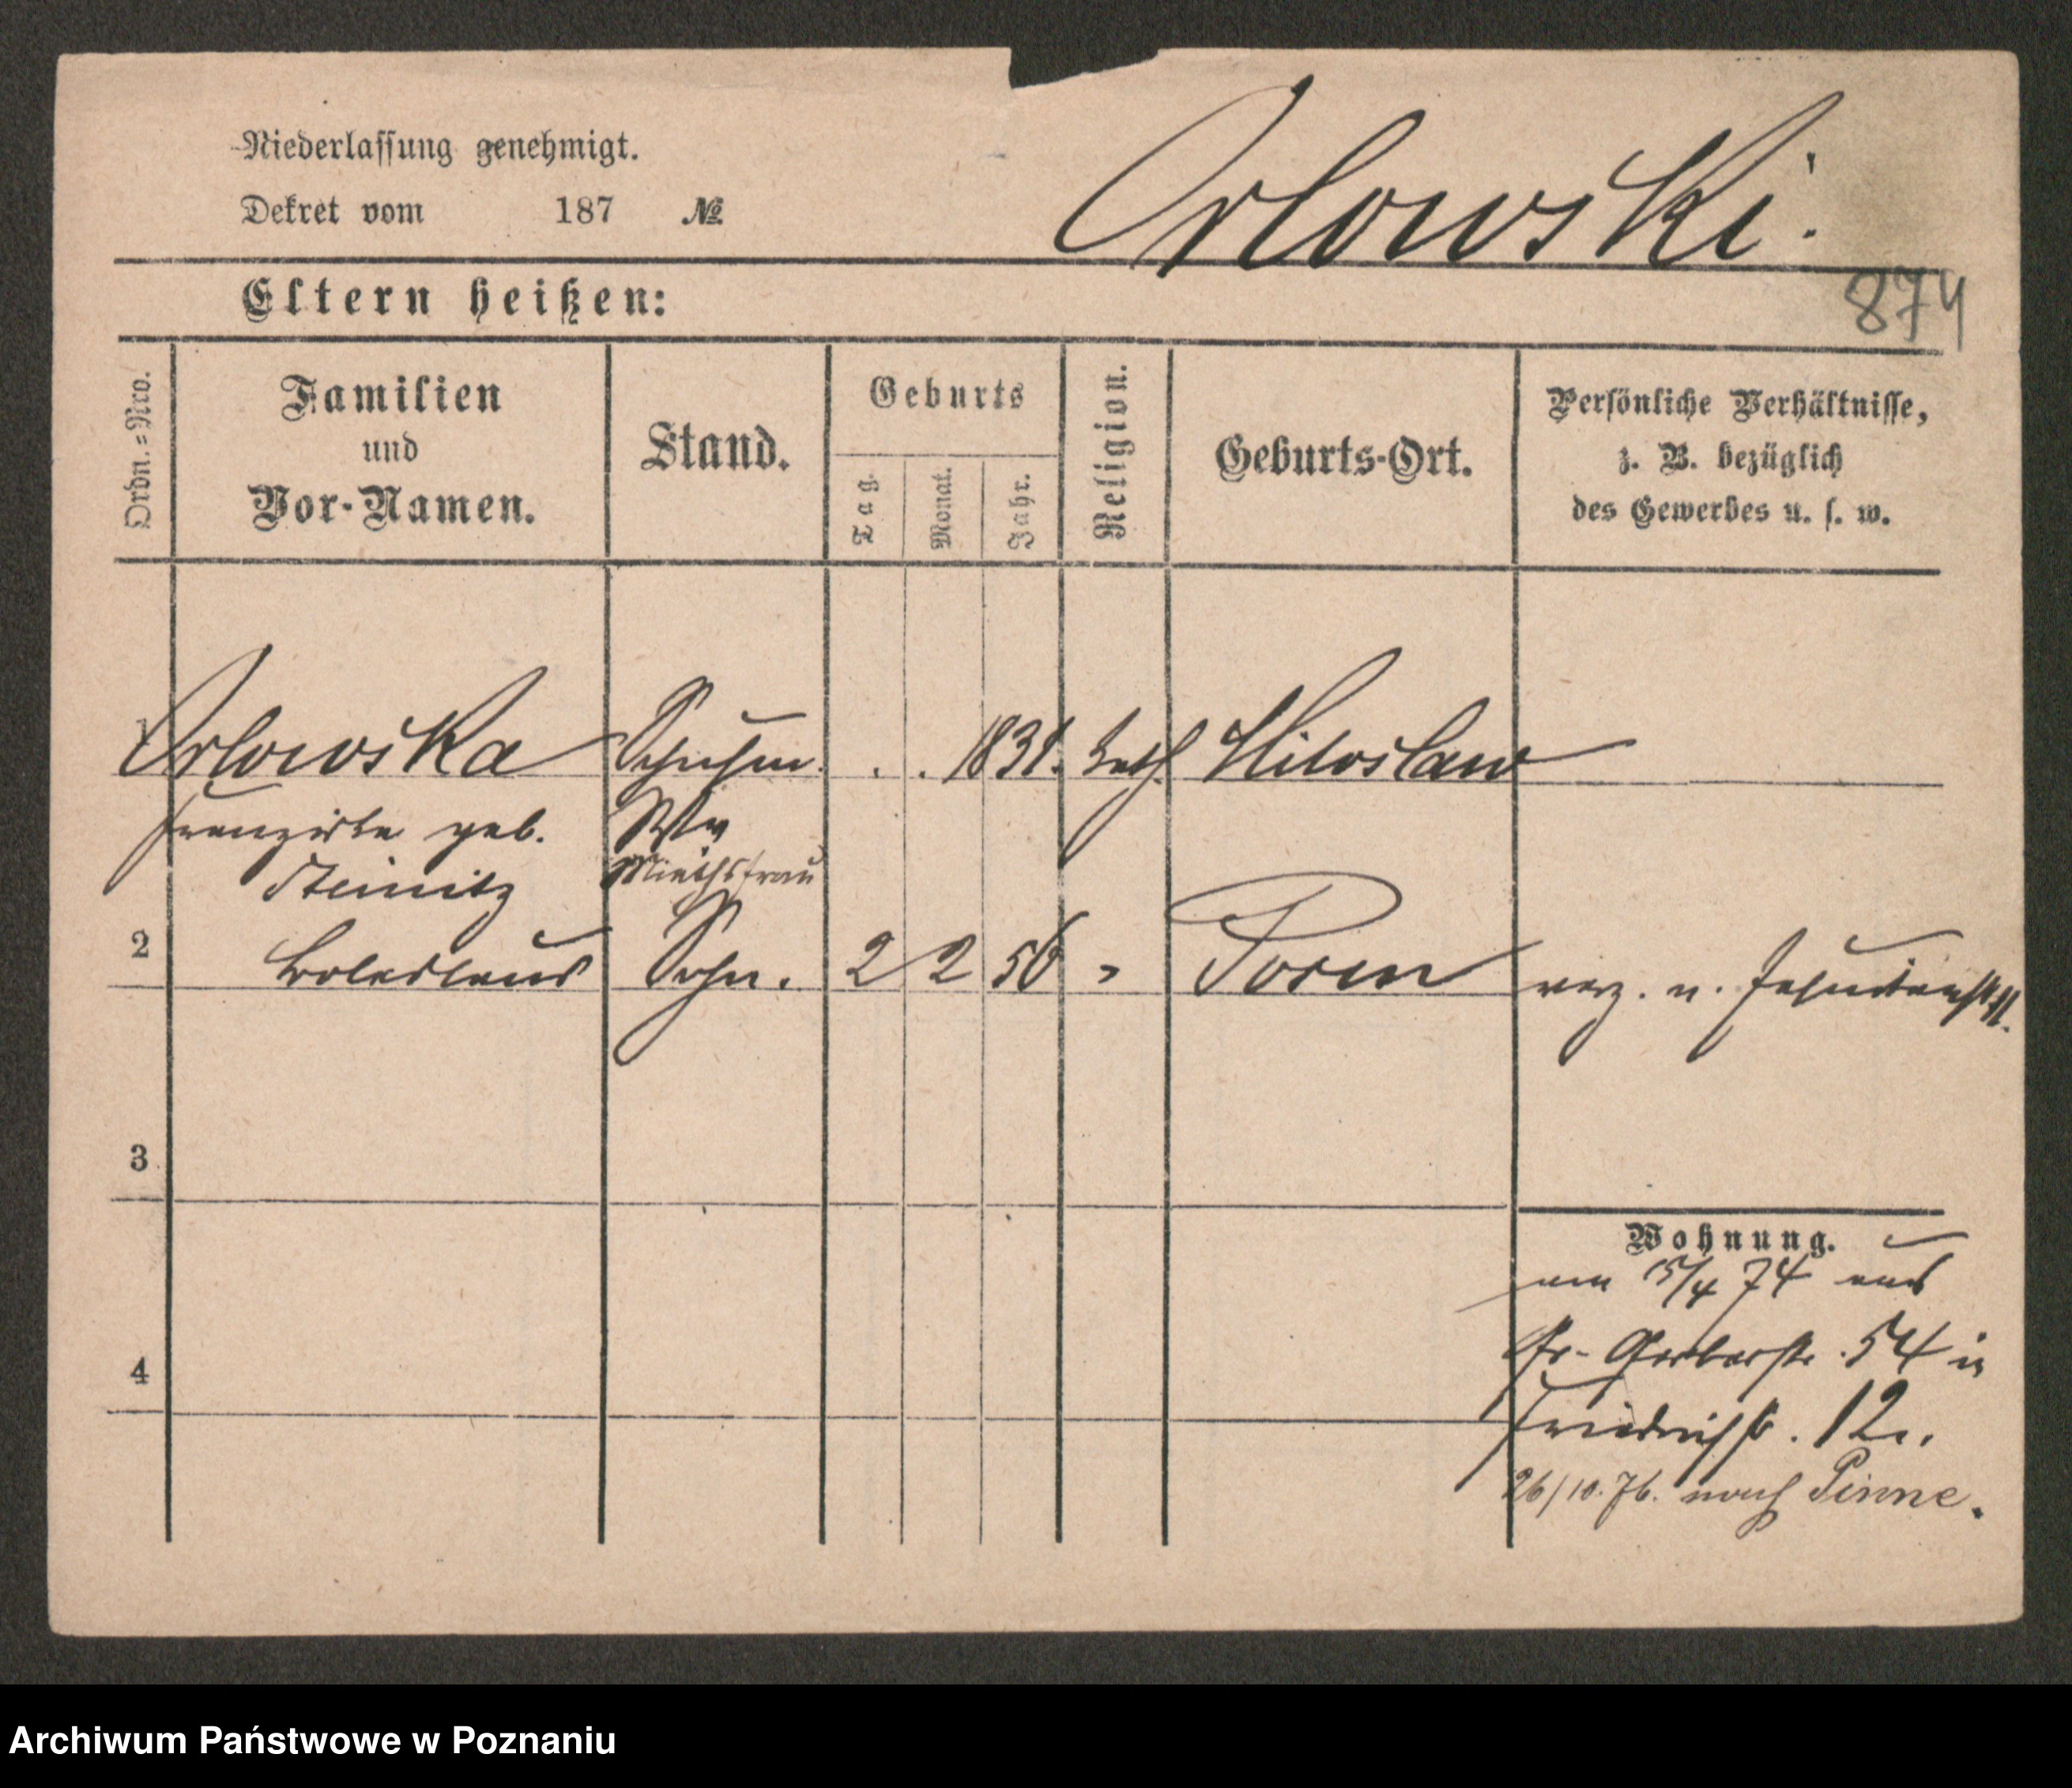 Niederlassung genehmigt.
Dekret vom 187 №
Orlowski.
874
Eltern heißen:
Ordn.=Nro.
Familien
und
Vor-Namen.
Stand.
Geburts
Tag.
Monat.
Jahr.
Religion.
Geburts-Ort.
Persönliche Verhältnisse,
z. B. bezüglich
des Gewerbes u. s. w.
1 Orlowska Schuhm. . . 1831. kath. Miloslaw
Franziska geb. Ww
Steinitz Miethsfrau
2 Boleslaus Sohn. 2 2 56 " Posen verz. n. Jesuitenstr. 11.
3
Wohnung.
am 15/4 74 aus
4
Gr. Gerberstr. 54 in
Friedrichstr. 12.
26/10.76. nach Pinne.
Archiwum Państwowe w Poznaniu